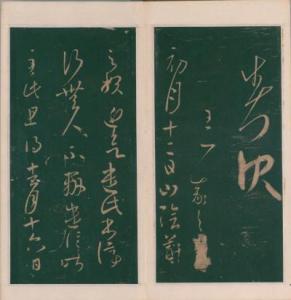 羲之
初月十二日山陰羲
之報近欲遣此書停
行無人不辦遣信昨
至此且得去月十六日